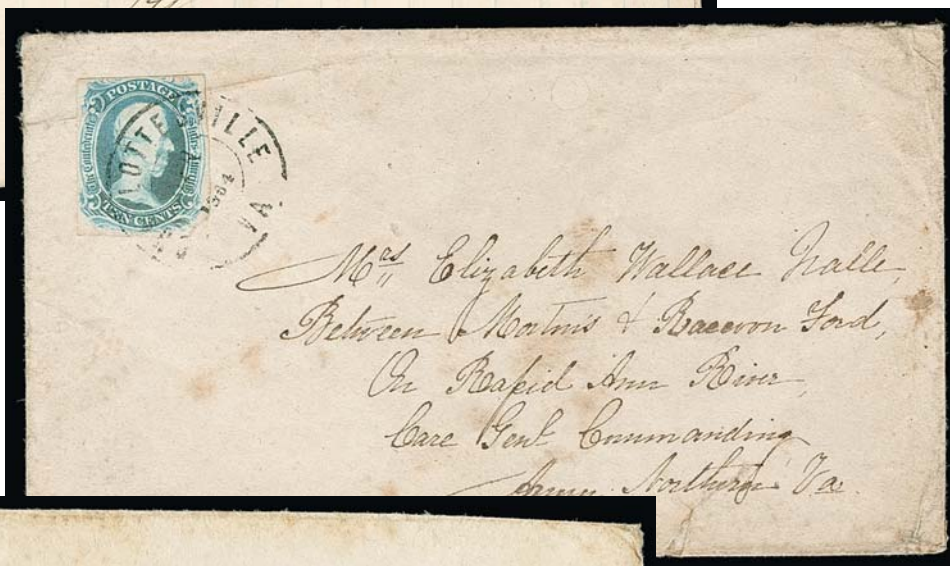 POSTAGE
The Confederate States of America
TEN CENTS
LOTTESVILLE
VA.
1864
Mrs Elizabeth Wallace Nalle,
Between Mortins & Raccoon Ford,
On Rapid Ann River
Care Genl Commanding
Army Northern Va.